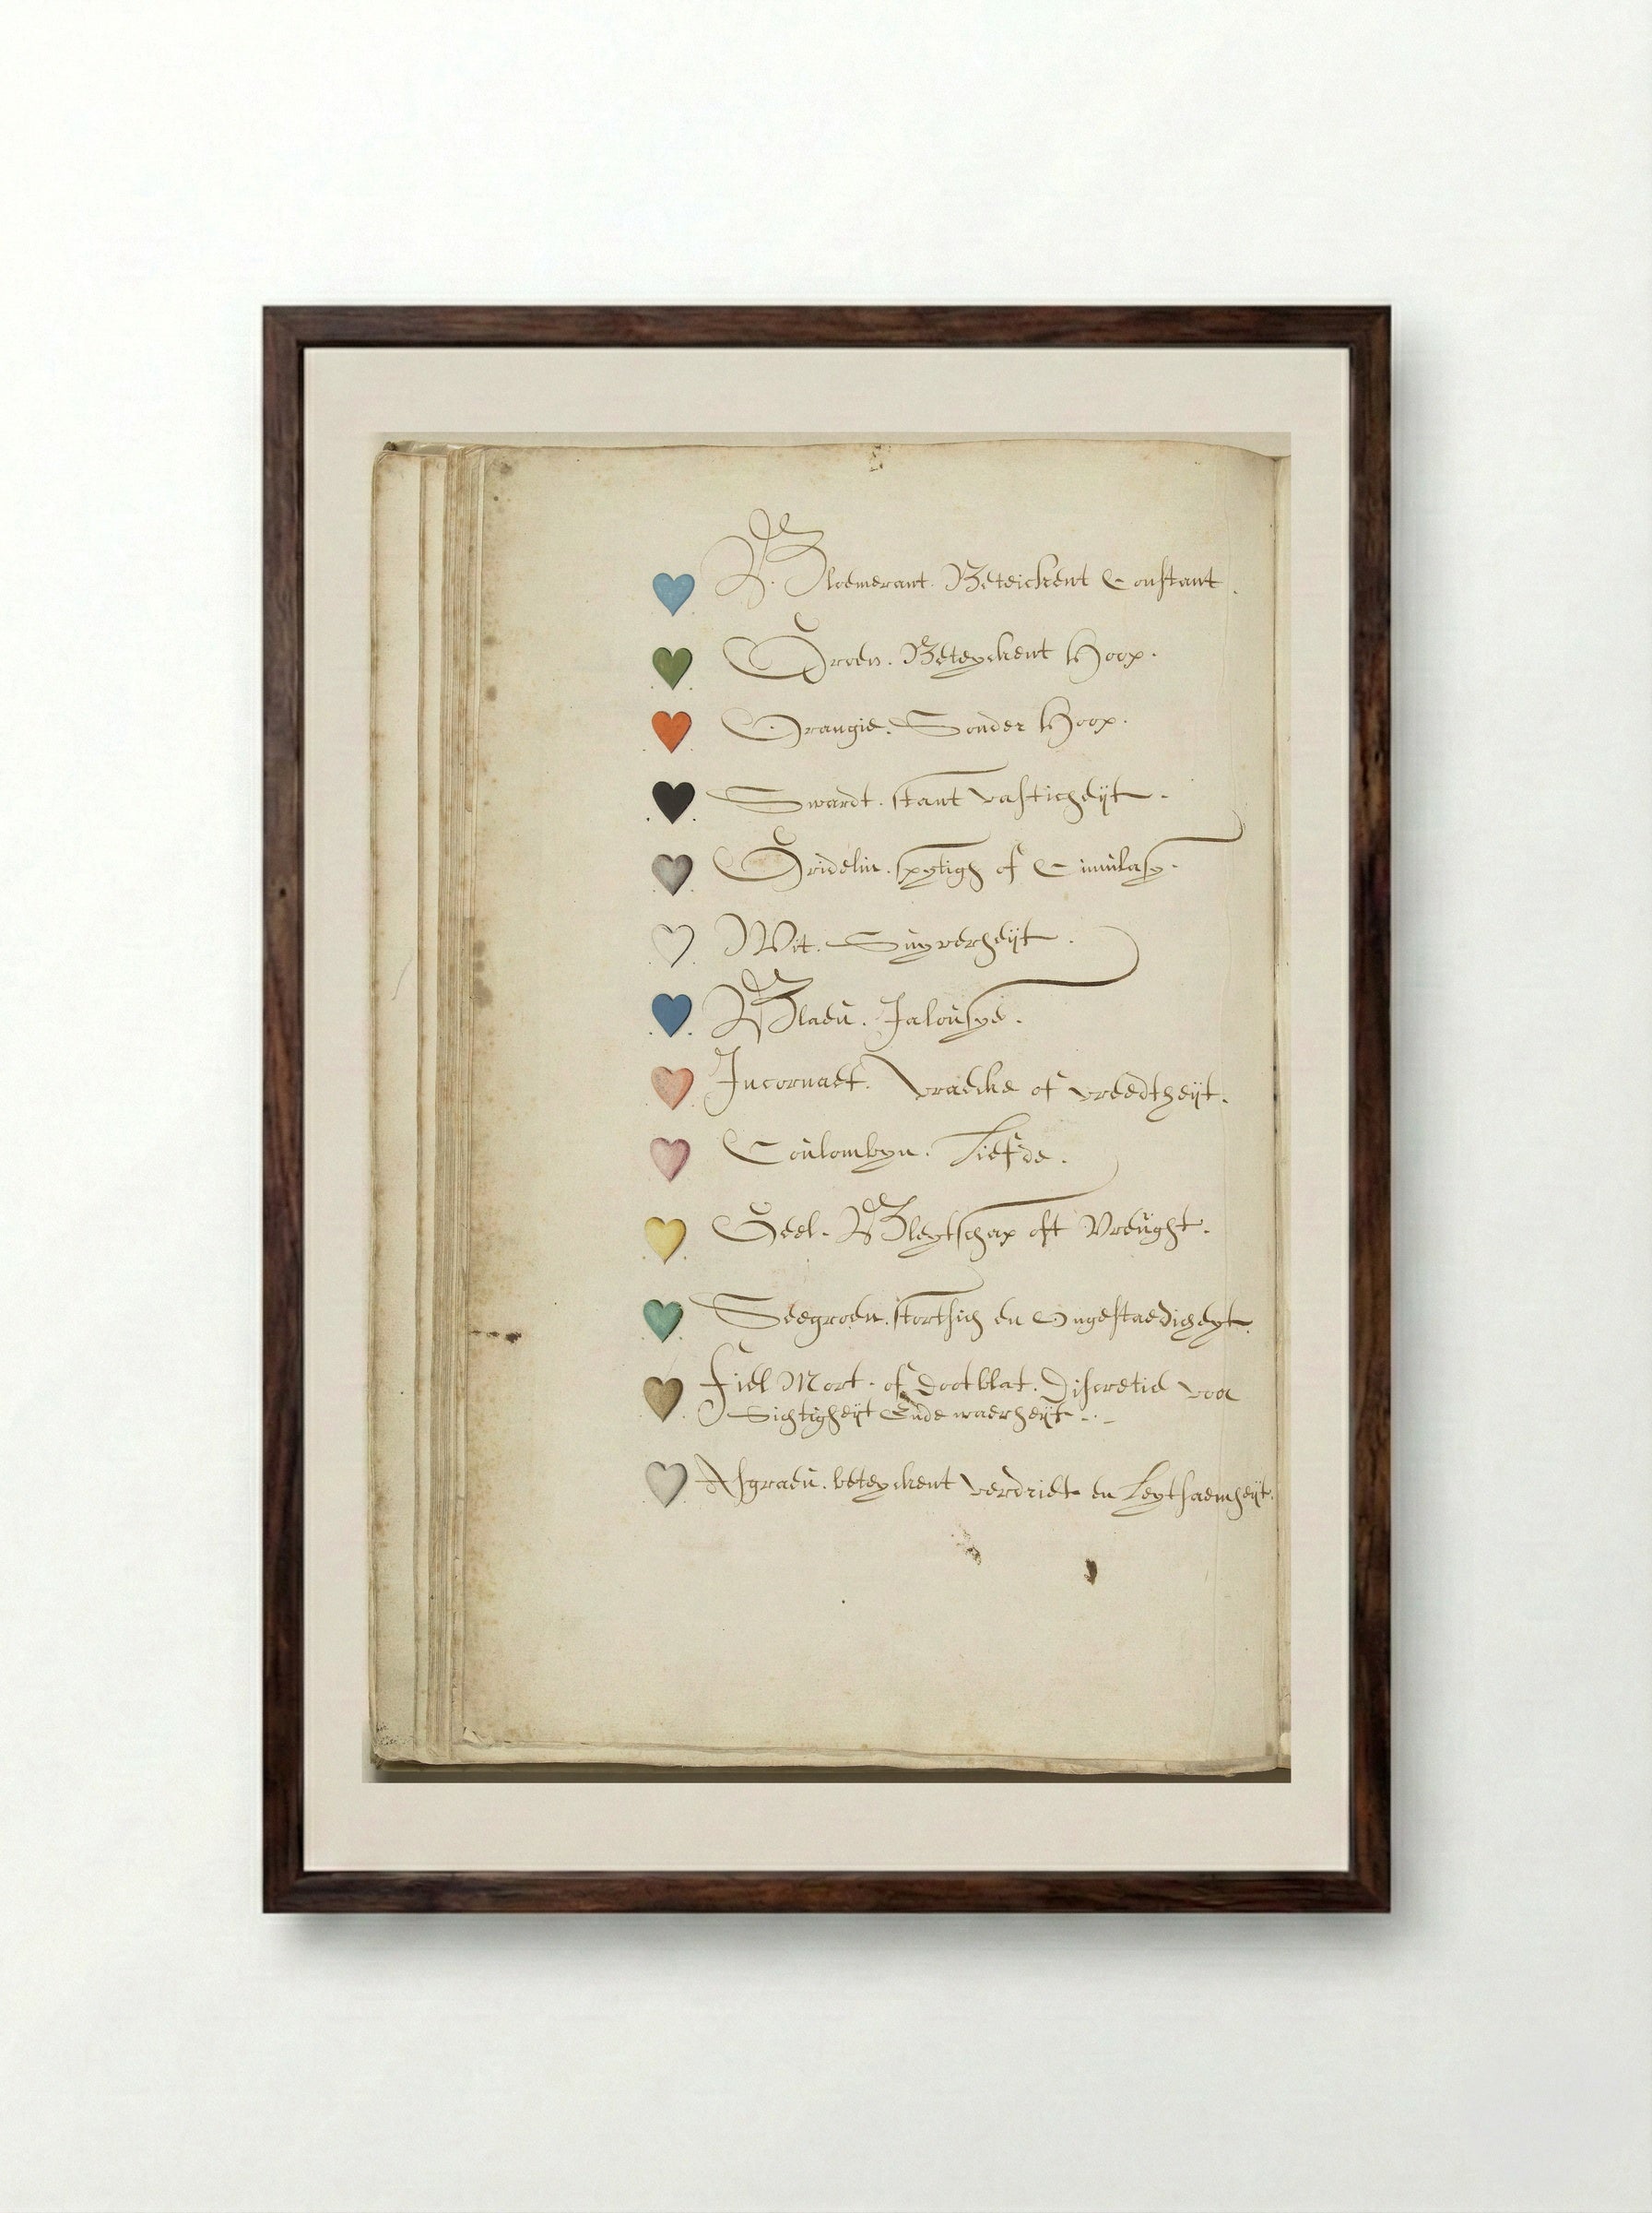 Bloemerant. Beteickent Constant.
Groen. Beteyckent Hoop.
Orangie. Sonder Hoop.
Swardt. stant vasticheijt.
Gridelin. spytigh of
Wit. Suyverheijt.
Blaeu. Jalousye.
Incornaet. Vraecke of vreedtheijt.
Coulombyn. Liefde.
Geel. Bleytschap oft Vreught.
Seegroen. en Ongestaedicheyt.
Fiel Mort. of dootblat. Discretie voor
Sichtigheijt Ende waerheijt.
Asgraeu. beteyckent verdriet en Leytsaemheijt.